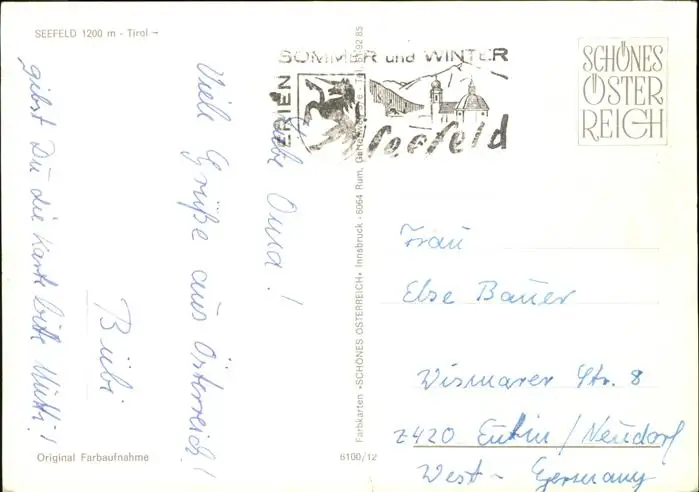 SEEFELD 1200 m - Tirol -
SOMMER und WINTER
FERIEN
Seefeld
SCHÖNES
ÖSTER
REICH
Liebe Oma!
Viele Grüße aus Österreich!
Bübi
gibst Du die Karte bitte Mutti!
Farbkarten »SCHÖNES ÖSTERREICH« Innsbruck - 6064 Rum,
Frau
Else Bauer
Wismarer Str. 8
2420 Eutin / Neudorf
West - Germany
Original Farbaufnahme
6100/12